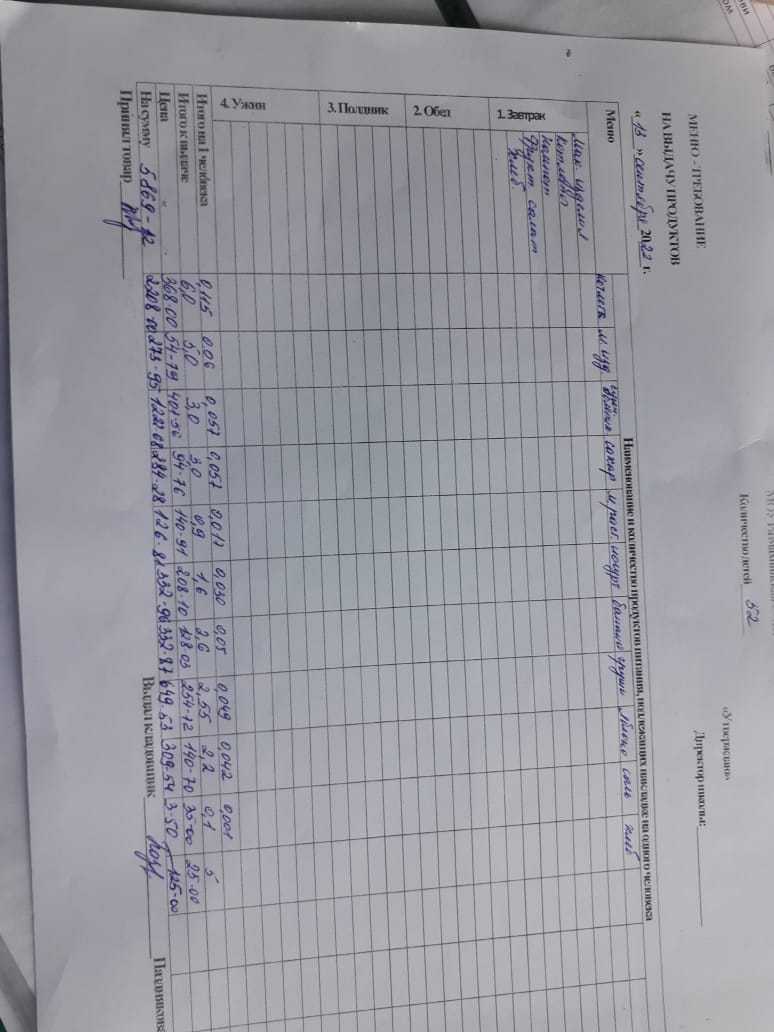 Количество детей 52
«Утверждаю»
Директор школы:
МЕНЮ - ТРЕБОВАНИЕ
НА ВЫДАЧУ ПРОДУКТОВ
« 13 » сентября 2022 г.
Наименование и количество продуктов питания, подлежащих накладке на одного человека
Меню котлета м. изд сахар м. раст йогурт бананы груши яблоко соль хлеб
1. Завтрак
Мак. изделия
Котлета
Компот
Фрукт салат
Хлеб
2. Обед
3. Полдник
4. Ужин
Итого на 1 человека 0,115 0,06 0,057 0,057 0,017 0,030 0,05 0,049 0,042 0,001
Итого к выдаче 6,0 5,0 3,0 3,0 0,9 1,6 2,6 2,55 2,2 0,1 5
Цена 368-00 54-79 94-76 140-91 208-10 128-03 254-72 140-70 35-00 25-00
На сумму 5869-12 2208-00 273-95 284-28 126-82 332-96 332-87 649-53 309-54 3-50 125-00
Принял товар Выдал кладовщик